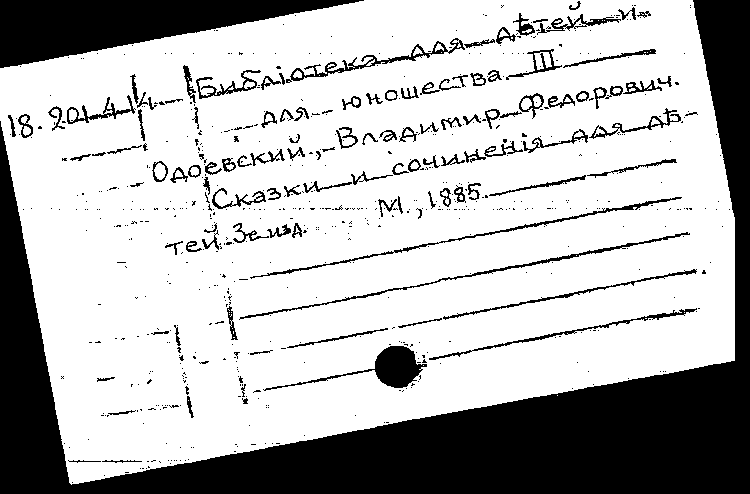 Библіотека для дѣтей и
18.201.4.14
для юношества III
Одоевский, Владимир Федорович.
Сказки и сочиненія для дѣ-
тей 3е изд. М., 1885.